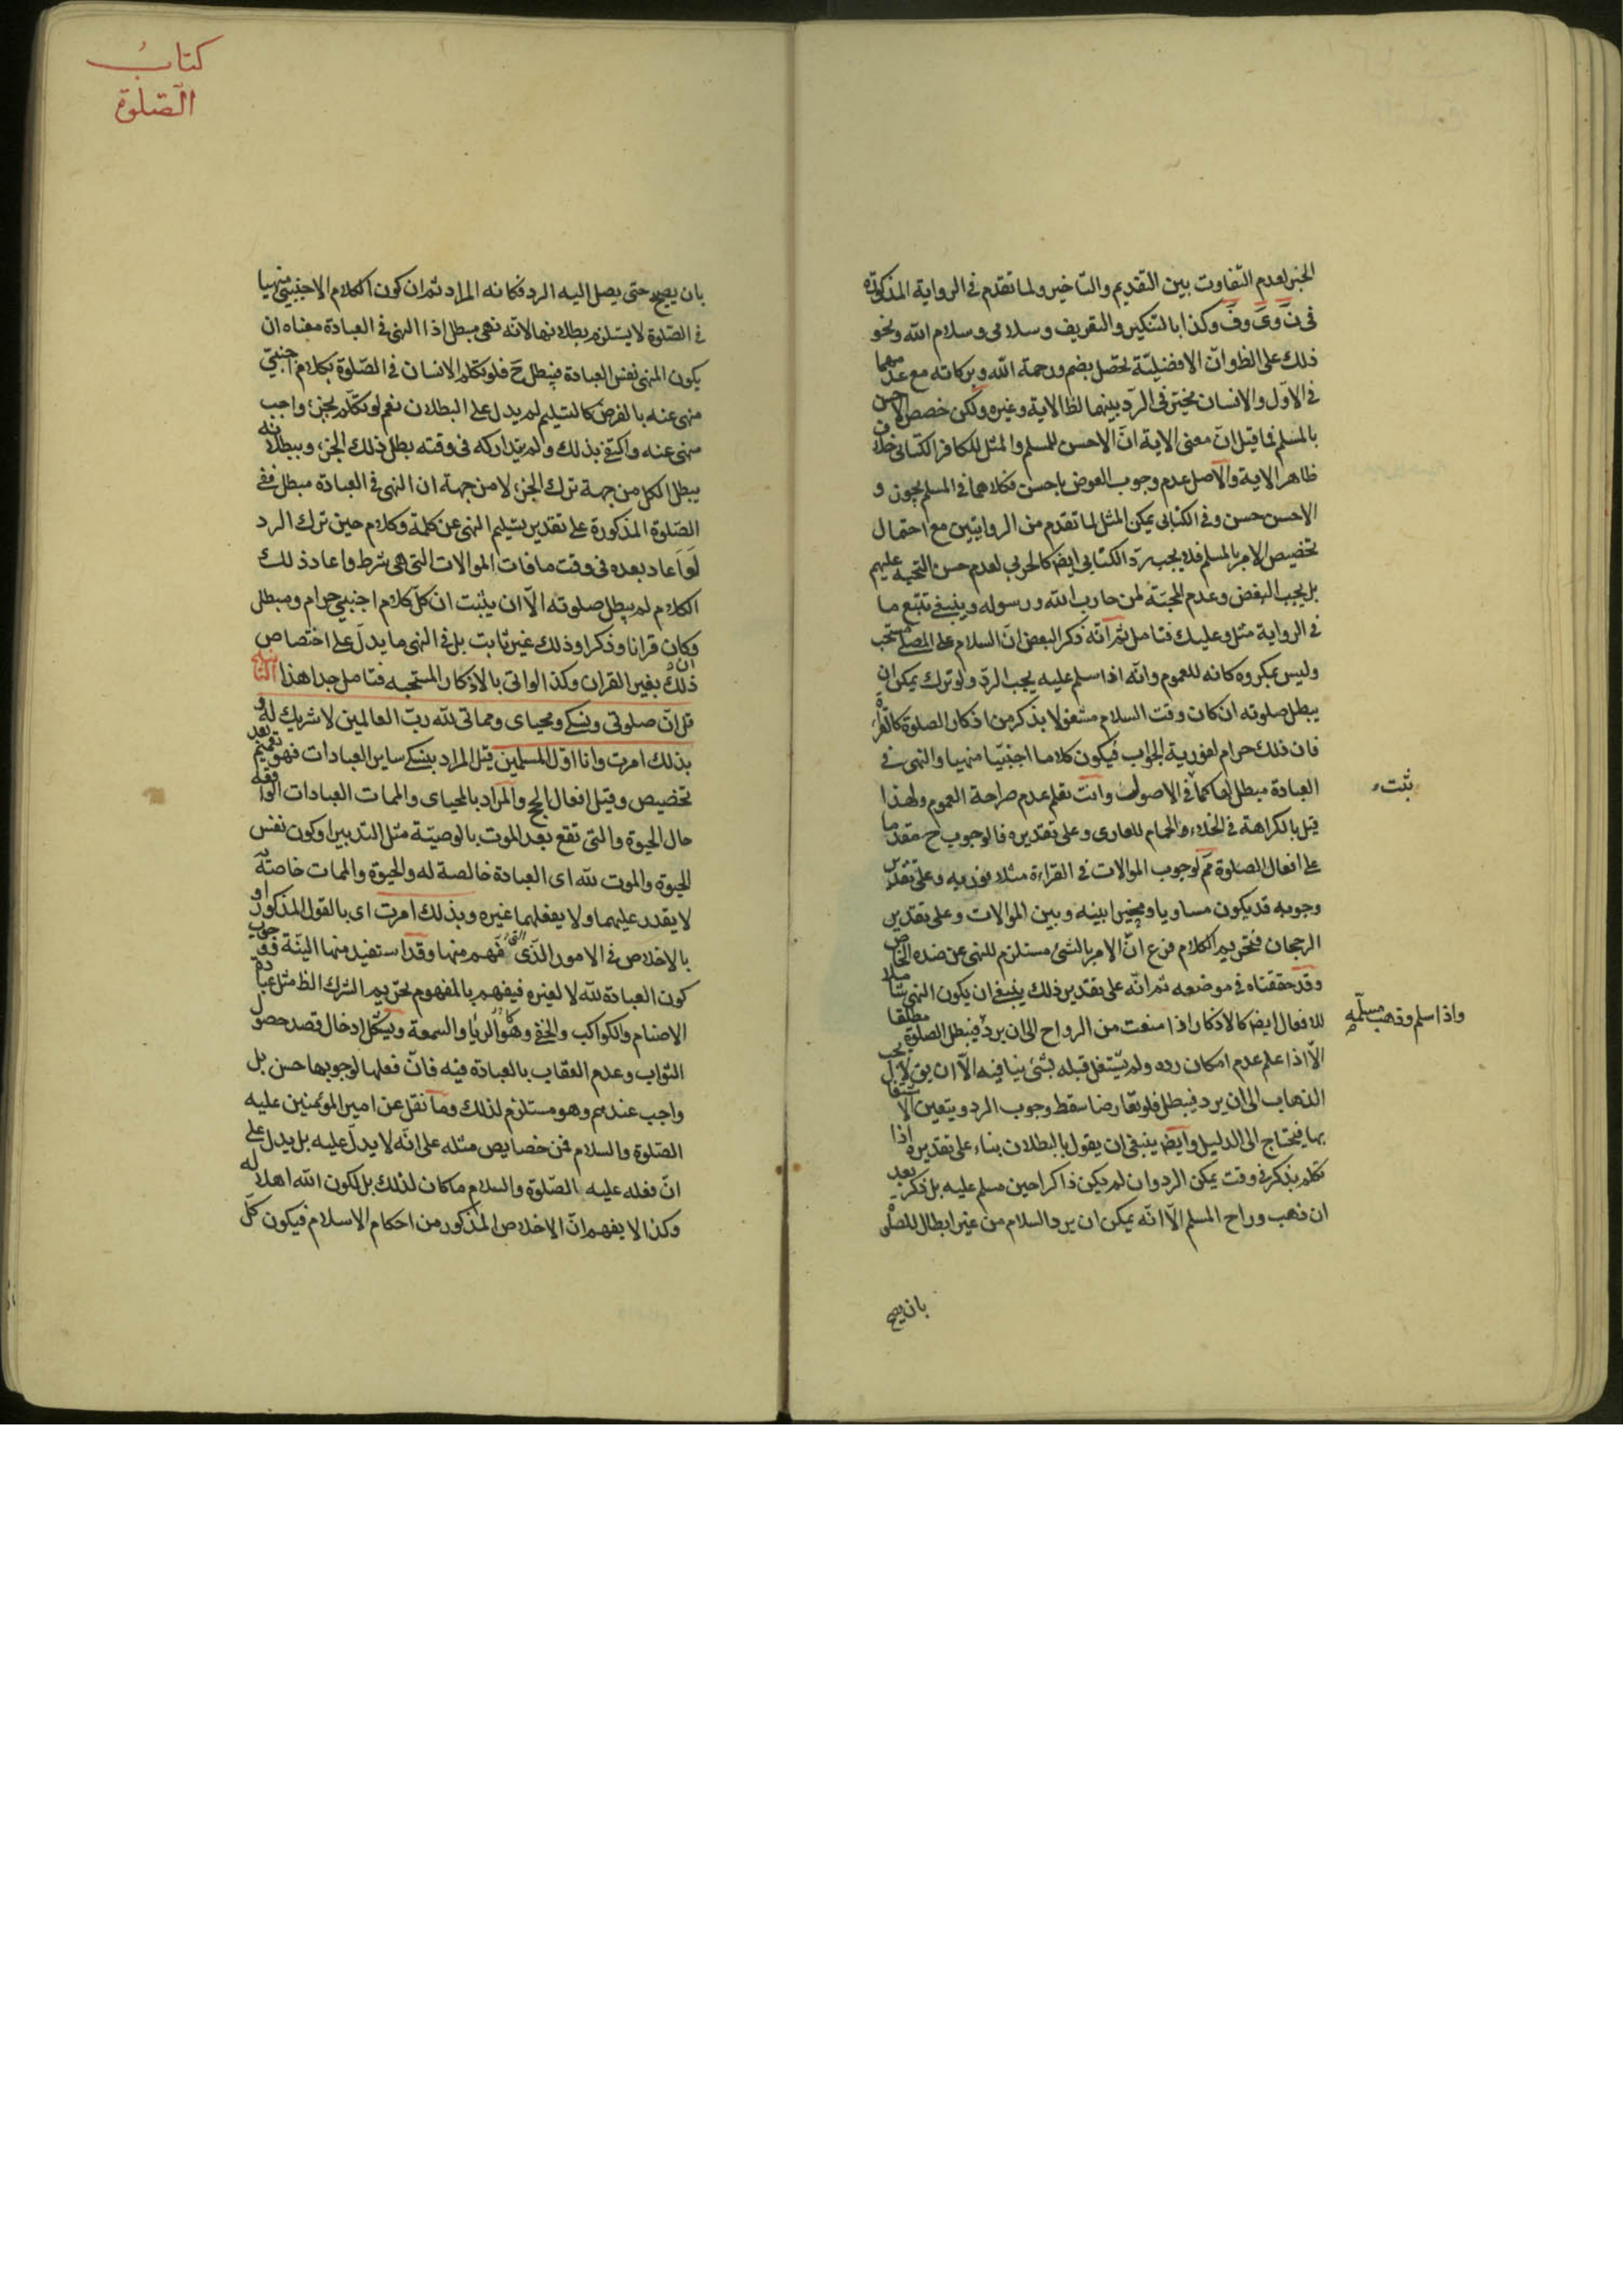 الخبر لعدم التفاوت بين التقديم والتاخير ولما تقدم فى الرواية المذكورة
وكذا بالتنكير والتعريف وسلامى وسلام الله ونحو
ذلك على الظ وانّ الافضليّة تحصل بضم ورحمة الله وبركاته مع عدمهما
فى الاوّل والانسان مخيّر فى الرد بينهما لظ الاية وغيره ولكن خصص الاحسن
بالمسلم فما قيل انّ معنى الاية انّ الاحسن للمسلم والمثل للكافر الكتابى خلاف
ظاهر الاية والاصل عدم وجوب العوض باحسن فكلاهما فى المسلم يجوز و
الاحسن حسن وفى الكتابى يمكن المثل لما تقدم من الروايتين مع احتمال
تخصيص الامر بالمسلم فلا يجب رد الكتابى ايض كالحربى لعدم حسن التحية عليهم
بل يجب البغض وعدم المحبّة لمن حارب الله ورسوله وينبغى تتبع ما
فى الرواية مثل وعليك فتامل ثم انّه ذكر البعض انّ السلام على المصلى مستحب
وليس بمكروه كانه للعموم وانّه اذا سلم عليه يجب الرد ولو ترك يمكن ان
يبطل صلوته ان كان وقت السلام مشغولا بذكر من اذكار الصلوة كالقراءة
فان ذلك حرام لفورية الجواب فيكون كلاما اجنبيّا منهيا والنهى فى
العبادة مبطل لها كما فى الاصول وانت تعلم عدم صراحة العموم ولهذا
ثبت
قيل بالكراهة فى الخلاء والحمام للعارى وعلى تقديره فالوجوب ح مقدما
على افعال الصلوة مم لوجوب الموالات فى القراءة مثلا فوريه وعلى تقدير
وجوبه قد يكون مساويا ومخيرا بينه وبين الموالات وعلى تقدير
الرجحان فتحريم الكلام فرع انّ الامر بالشئ مستلزم للنهى عن ضده الخاص
وقد حققناه فى موضعه ثم انّه على تقدير ذلك ينبغى ان يكون النهى شاملا
للافعال ايضا كالاذكار اذا منعت من الرواح الى ان يرد فيبطل الصلوة مطلقا
واذا سلم وذهب مسلمه
الّا اذا علم عدم امكان رده ولم يشتغل قبله بشئ ينافيه الّا ان يق لا يجب
الذهاب الى ان يرد فيبطل فلو تعارضا سقط وجوب الرد ويتعين الاشتغال
بها فيحتاج الى الدليل وايض ينبغى ان يقول بالبطلان بناء على تقديره اذا
تكلم بذكر فى وقت يمكن الرد وان لم يكن ذاكرا حين مسلم عليه بل ذكر بعد
ان ذهب وراح المسلم الّا انّه يمكن ان يرد السلام من غير ابطال للصلوة
بان يصح
كتاب
الصّلوة
بان يصح حتى يصل اليه الرد فكانه المراد ثم ان كون الكلام الاجنبىّ منهيا
فى الصّلوة لا يستلزم بطلانها لانّه نهى مبطل اذا النهى فى العبادة معناه ان
يكون المنهى نفس العبادة فيبطل ح فلو تكلم الانسان فى الصّلوة بكلام اجنبىّ
منهى عنه بالفرض كالتسليم لم يدل على البطلان نعم لو تكلّم بجزء واجب
منهى عنه واكتفى بذلك ولم يتداركه فى وقته بطل ذلك الجزء وببطلانه
يبطل الكل من جهة ترك الجزء لا من جهة ان النهى فى العبادة مبطل ففى
الصّلوة المذكورة على تقدير تسليم النهى عن كلمة وكلام حين ترك الرد
لو اعاد بعده فى وقت ما فات الموالات التى هى شرط واعاد ذلك
الكلام لم يبطل صلوته الّا ان يثبت ان كلّ كلام اجنبى حرام ومبطل
وكان قرانا وذكرا وذلك غير ثابت بل فى النهى ما يدلّ على اختصاص
ذلك بغير القران وكذا لو اتى بالاذكار المستحبه فتامل جدا هذا
قل انّ صلوتى ونسكى ومحياى ومماتى لله ربّ العالمين لا شريك له و
بذلك امرت وانا اوّل المسلمين قيل المراد بنسكى ساير العبادات فهو تعميم بعد
تخصيص وقيل افعال الحج والمراد بالمحياى والممات العبادات الواقعة
حال الحيوة والتى تقع بعد الموت بالوصيّة مثل التدبير او كون نفس
الحيوة والموت لله اى العبادة خالصة له والحيوة والممات خاصّة به
لا يقدر عليهما ولا يفعلهما غيره وبذلك امرت اى بالقول المذكور او
بالاخلاص فى الامور الّذى فهم منها وقد استفيد منها النيّة ووجوب
كون العبادة لله لا لغيره فيفهم بالمفهوم تحريم الشرك الظ مثل عبادة
الاصنام والكواكب والخفى وهو الريا والسمعة ويشكل ادخال قصد حصول
الثواب وعدم العقاب بالعبادة فيه فانّ فعلها لوجوبها حسن بل
واجب عندهم وهو مستلزم لذلك وما نقل عن امير المؤمنين عليه
الصّلوة والسلام فمن خصايص مثله على انّه لا يدلّ عليه بل يدل على
انّ فعله عليه الصّلوة والسلام ما كان لذلك بل لكون الله اهلا له
وكذا لا يفهم انّ الاخلاص المذكور من احكام الاسلام فيكون كلّ